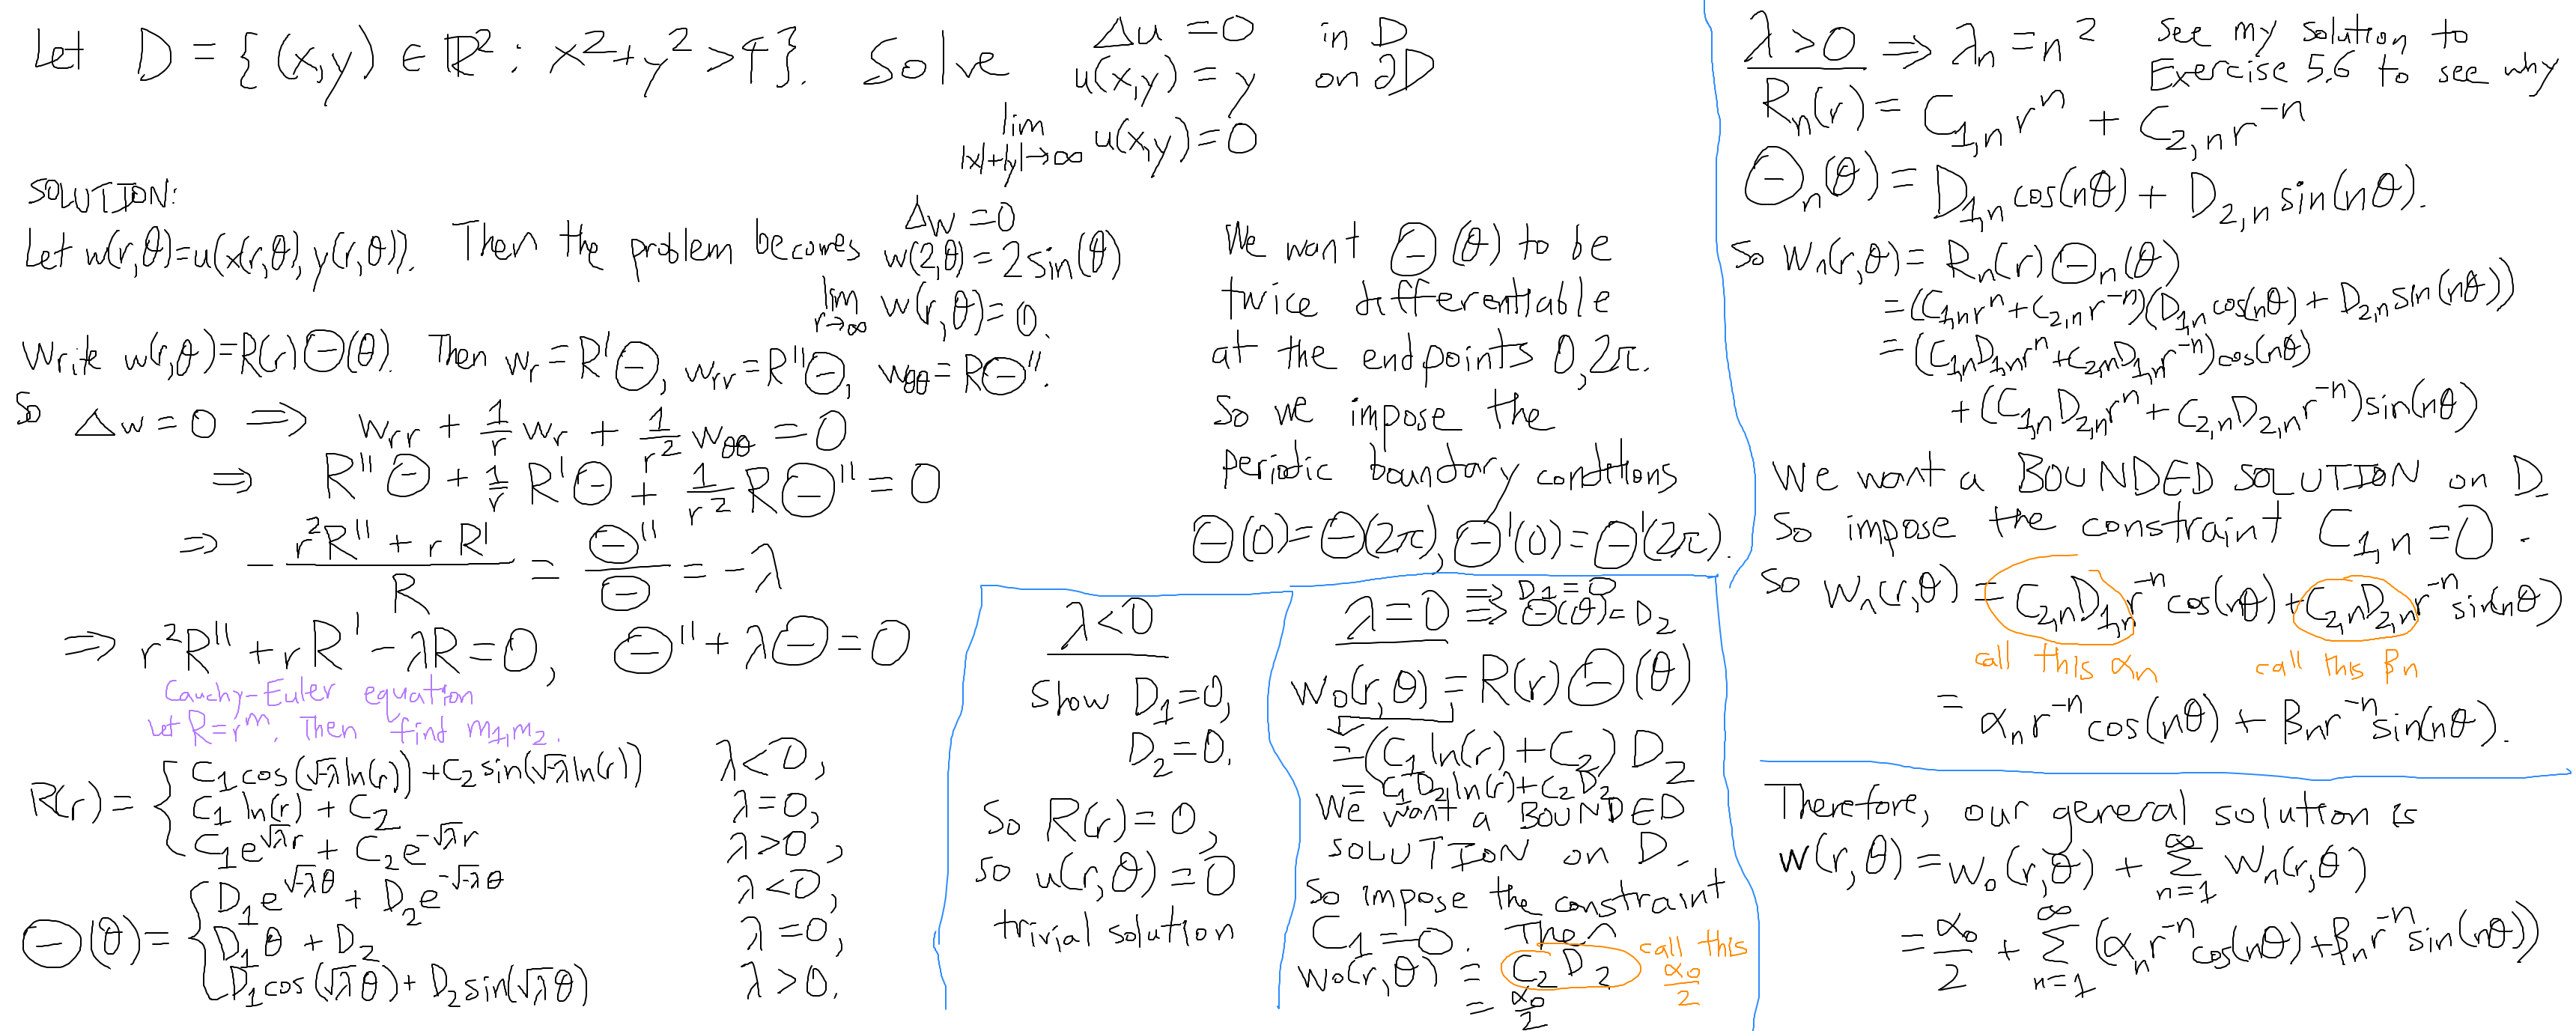 Let D = { (x,y) ∈ ℝ² : x²+y² > 4 }. Solve Δu = 0 in D
u(x,y) = y on ∂D
lim |x|+|y|→∞ u(x,y) = 0
SOLUTION:
Let w(r,θ)=u(x(r,θ), y(r,θ)). Then the problem becomes Δw = 0
w(2,θ) = 2 sin(θ)
lim r→∞ w(r,θ) = 0.
Write w(r,θ)=R(r)Θ(θ). Then w_r = R'Θ, w_rr = R''Θ, w_θθ = RΘ''.
So Δw = 0 ⇒ w_rr + 1/r w_r + 1/r² w_θθ = 0
⇒ R''Θ + 1/r R'Θ + 1/r² RΘ'' = 0
⇒ - (r²R'' + rR')/R = Θ''/Θ = -λ
⇒ r²R'' + rR' - λR = 0, Θ'' + λΘ = 0
Cauchy-Euler equation
Let R=r^m. Then find m₁,m₂.
R(r) = { C₁cos(√-λ ln(r)) + C₂sin(√-λ ln(r)) λ<0,
C₁ ln(r) + C₂ λ=0,
C₁e^{√λ r} + C₂e^{-√λ r} λ>0,
Θ(θ) = { D₁e^{√-λ θ} + D₂e^{-√-λ θ} λ<0,
D₁θ + D₂ λ=0,
D₁cos(√λ θ) + D₂sin(√λ θ) λ>0.
We want Θ(θ) to be
twice differentiable
at the endpoints 0, 2π.
So we impose the
periodic boundary conditions
Θ(0)=Θ(2π), Θ'(0)=Θ'(2π).
λ<0
Show D₁=0,
D₂=0.
So R(r)=0,
so u(r,θ)=0
trivial solution
λ=0 ⇒ D₁=0
⇒ Θ(θ)=D₂
w₀(r,θ) = R(r)Θ(θ)
= (C₁ ln(r) + C₂) D₂
= C₁D₂ ln(r) + C₂D₂
We want a BOUNDED
SOLUTION on D.
So impose the constraint
C₁=0. Then
w₀(r,θ) = C₂D₂ call this α₀/2
= α₀/2
λ>0 ⇒ λₙ = n² See my solution to
Exercise 5.6 to see why
Rₙ(r) = C₁,ₙ rⁿ + C₂,ₙ r⁻ⁿ
Θₙ(θ) = D₁,ₙ cos(nθ) + D₂,ₙ sin(nθ).
So wₙ(r,θ) = Rₙ(r)Θₙ(θ)
= (C₁,ₙrⁿ + C₂,ₙr⁻ⁿ)(D₁,ₙ cos(nθ) + D₂,ₙ sin(nθ))
= (C₁,ₙD₁,ₙrⁿ + C₂,ₙD₁,ₙr⁻ⁿ)cos(nθ)
+ (C₁,ₙD₂,ₙrⁿ + C₂,ₙD₂,ₙr⁻ⁿ)sin(nθ)
We want a BOUNDED SOLUTION on D.
So impose the constraint C₁,ₙ = 0.
So wₙ(r,θ) = C₂,ₙD₁,ₙ r⁻ⁿ cos(nθ) + C₂,ₙD₂,ₙ r⁻ⁿ sin(nθ)
call this αₙ call this βₙ
= αₙ r⁻ⁿ cos(nθ) + βₙ r⁻ⁿ sin(nθ).
Therefore, our general solution is
w(r,θ) = w₀(r,θ) + ∑_{n=1}^∞ wₙ(r,θ)
= α₀/2 + ∑_{n=1}^∞ (αₙ r⁻ⁿ cos(nθ) + βₙ r⁻ⁿ sin(nθ))